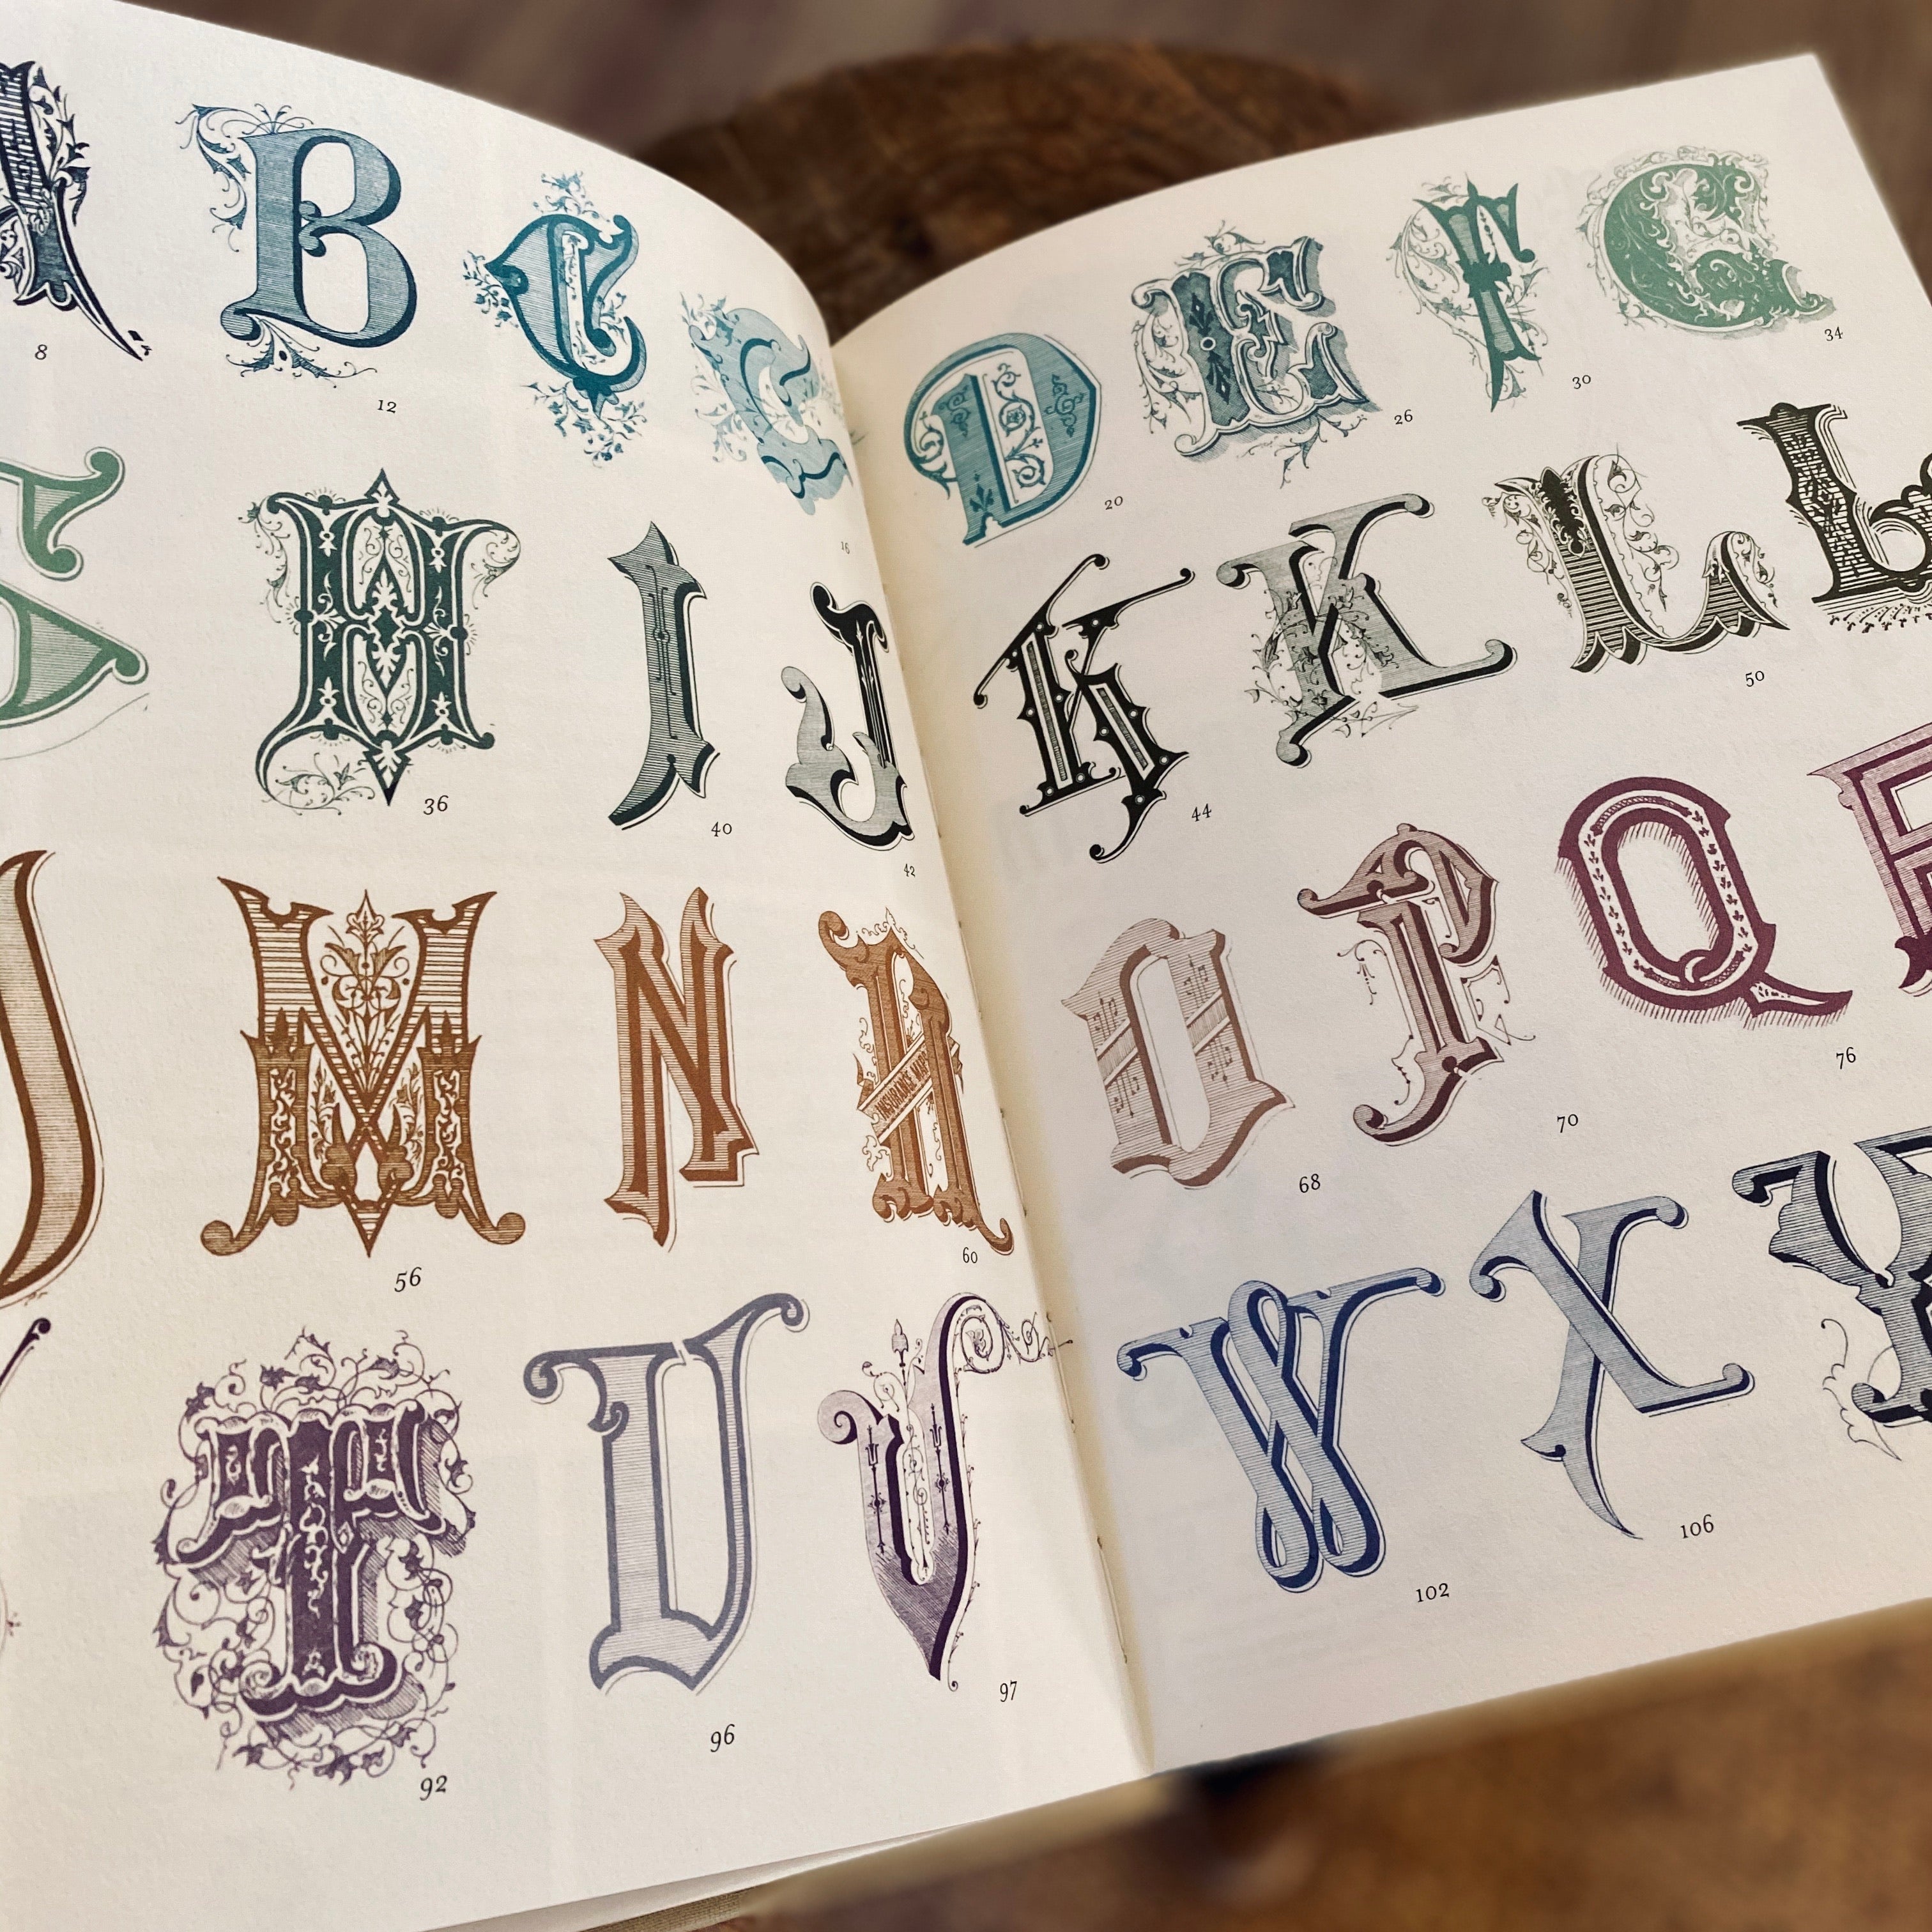 B C C
8 12 16
H I J
36 40 42
M N N
INSURANCE MAPS
56 60
T U V
92 96 97
D E F G
20 26 30 34
K K L L
44 50
O P Q
68 70 76
W X Y
102 106